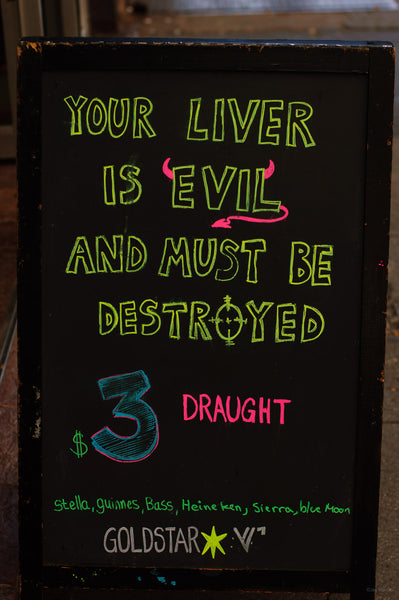 YOUR LIVER
IS EVIL
AND MUST BE
DESTROYED
$3 DRAUGHT
Stella, guinnes, Bass, Heineken, Sierra, blue Moon
GOLDSTAR